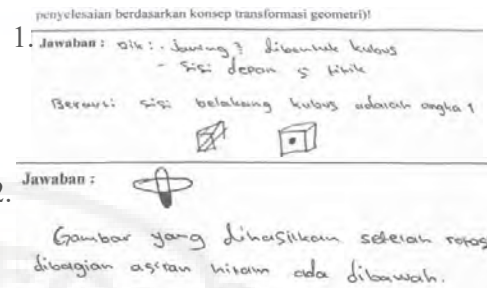 penyelesaian berdasarkan konsep transformasi geometri)!
1. Jawaban : Dik : - Jaring² dibentuk kubus
- Sisi depan 5 titik
Berarti sisi belakang kubus adalah angka 1
2. Jawaban :
Gambar yang dihasilkan setelah rotas
dibagian hitam ada dibawah.